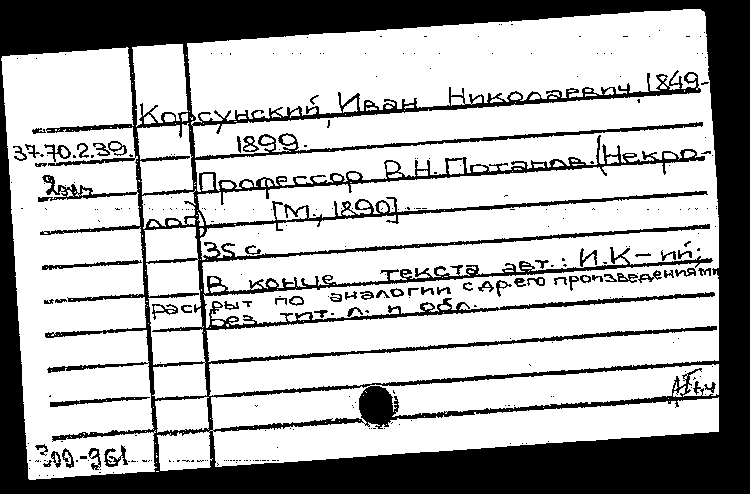 Корсунский, Иван Николаевич, 1849-
37.70.2.39. 1899.
2 экз Профессор В.Н. Потапов. (Некро-
лог) [М., 1890].
35 с.
В конце текста авт.: И.К-ий;
раскрыт по аналогии с др. его произведениями
Без тит. л. и обл.
309-961